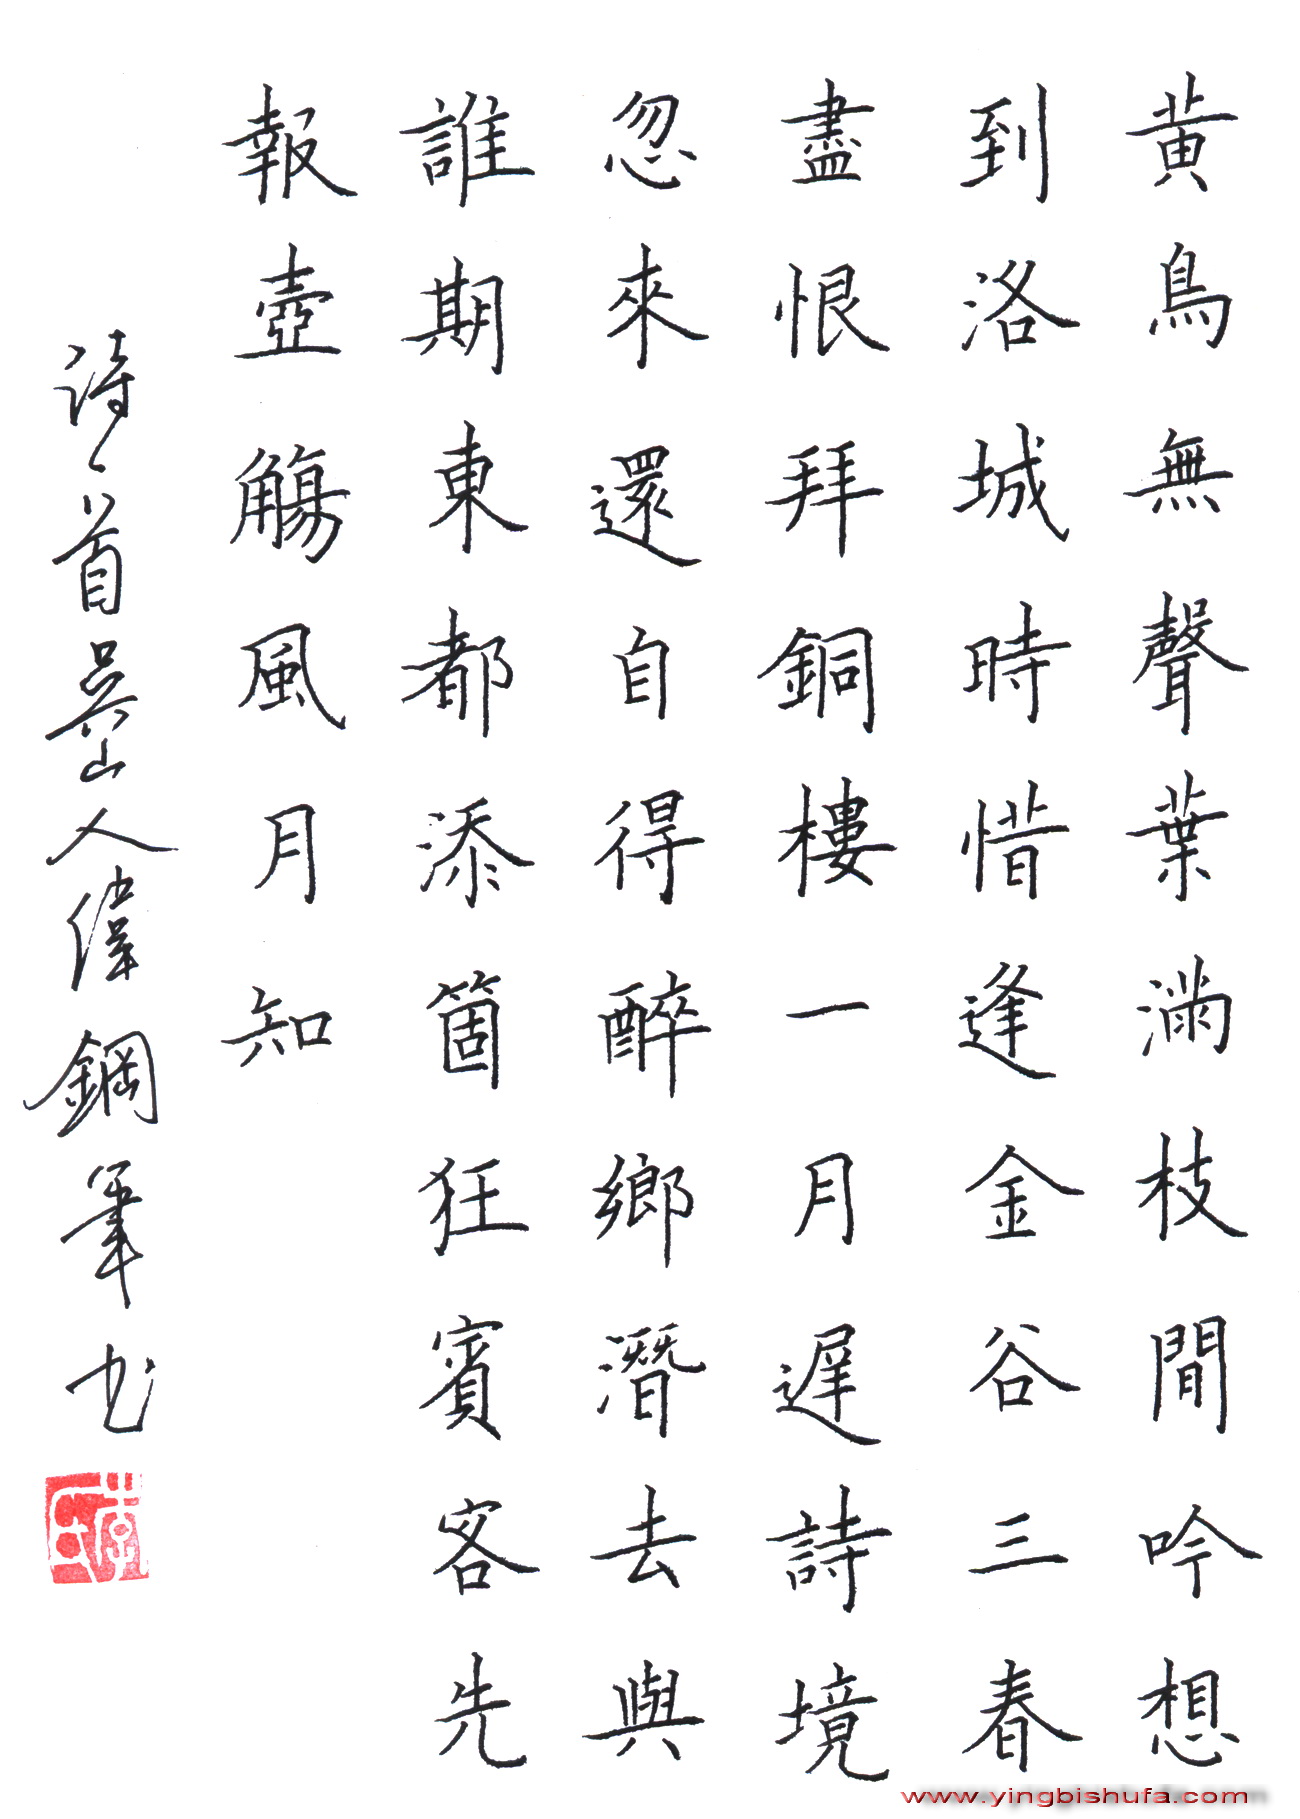 黄鳥無聲葉滿枝間吟想
到洛城時惜逢金谷三春
盡恨拜銅樓一月遲詩境
忽來還自得醉鄉潛去與
誰期東都添箇狂賓客先
報壺觴風月知
詩一首吳山人偉鋼筆书
www.yingbishufa.com